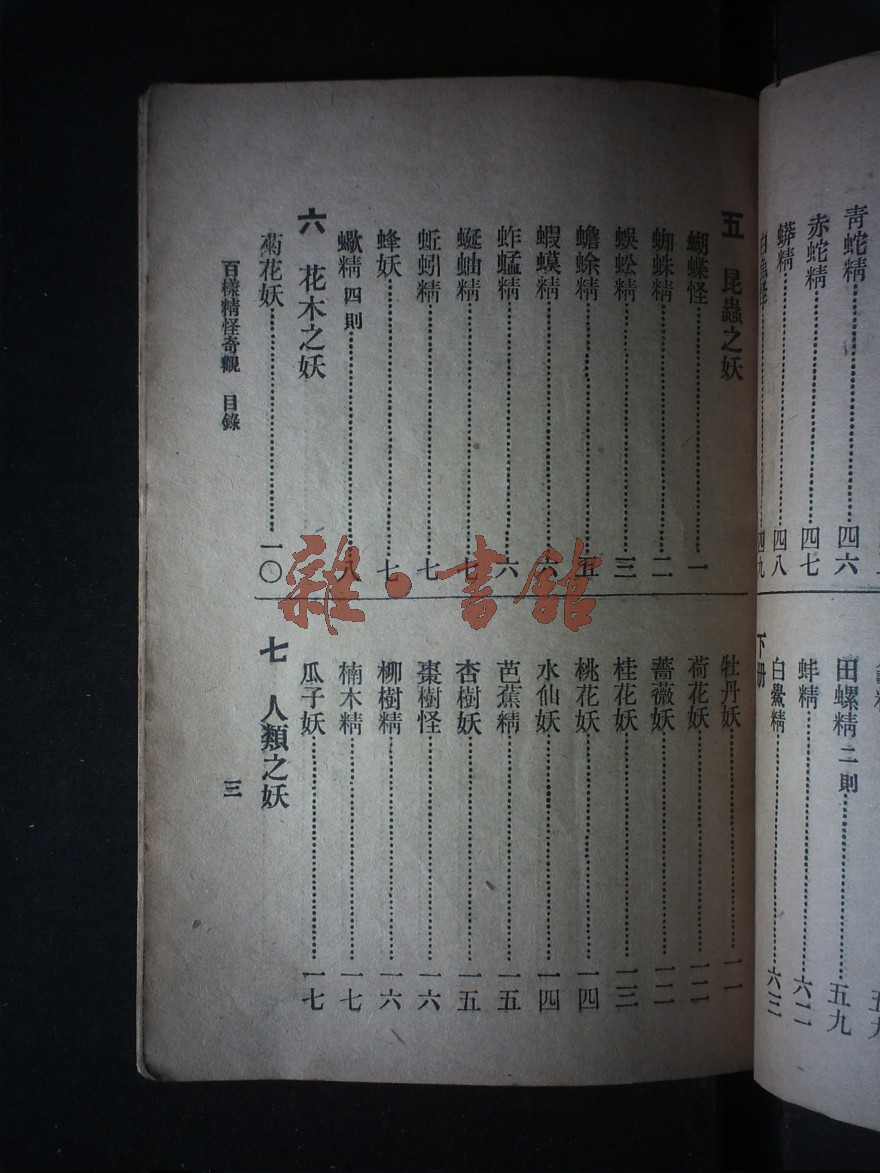 青蛇精……四六
赤蛇精……四七
蟒精……四八
四九
下册
田螺精 二則……五九
蚌精……六二
白鱟精……六三
五 昆蟲之妖
蝴蝶怪……一
蜘蛛精……二
蜈蚣精……三
蟾蜍精……五
蝦蟆精……六
蚱蜢精……六
蜒蚰精……七
蚯蚓精……七
蜂妖……七
蠍精 四則……八
六 花木之妖
菊花妖……一〇
牡丹妖……一一
荷花妖……一二
薔薇妖……一二
桂花妖……一三
桃花妖……一四
水仙妖……一四
芭蕉精……一五
杏樹妖……一五
棗樹怪……一六
柳樹精……一六
楠木精……一七
瓜子妖……一七
七 人類之妖
百樣精怪奇觀 目錄
三
雜·書館